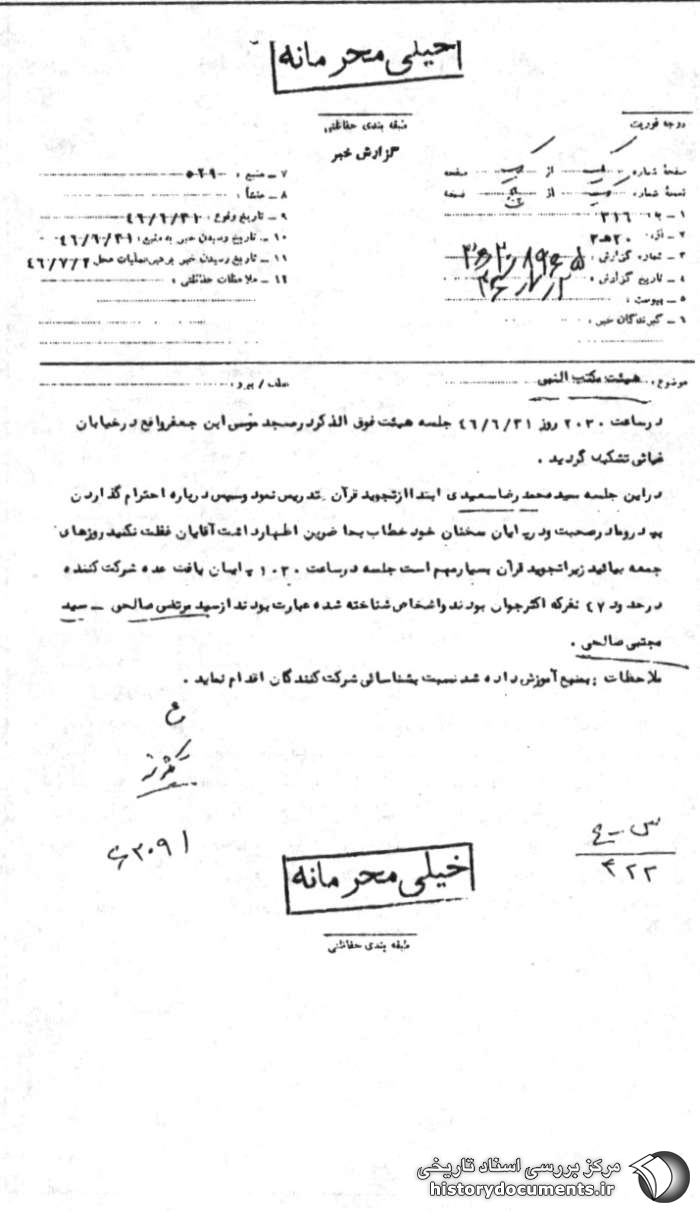 خیلی محرمانه
طبقه بندی حفاظتی
گزارش خبر
درجه فوریت
صفحه شماره : یک از یک صفحه
نسخه شماره : یک از نسخه
۱ ـ به : ۳۱۶
۲ ـ از : ۲۰ ه ۳
۳ ـ شماره گزارش :
۴ ـ تاریخ گزارش :
۵ ـ پیوست :
۶ ـ گیرندگان خبر :
۷ ـ منبع : ۵۶۹
۸ ـ منشأ :
۹ ـ تاریخ وقوع : ۴۶/۶/۳۱
۱۰ ـ تاریخ رسیدن خبر به منبع : ۴۶/۶/۳۱
۱۱ ـ تاریخ رسیدن خبر به رهبر عملیات محل ۴۶/۷/۲
۱۲ ـ ملاحظات حفاظتی :
موضوع : هیئت مکتب النبی
عطف / پیرو :
درساعت ۲۰۳۰ روز ۴۶/۶/۳۱ جلسه هیئت فوق الذکر در مسجد موسی ابن جعفر واقع در خیابان
غیاثی تشکیل گردید .
دراین جلسه سید محمد رضا سعیدی ابتدا از تجوید قرآن تدریس نمود و سپس درباره احترام گذاردن
پدر و مادر صحبت و در پایان سخنان خود خطاب بحاضرین اظهار داشت آقایان غفلت نکنید روزهای
جمعه بیائید زیرا تجوید قرآن بسیار مهم است جلسه درساعت پایان یافت عده شرکت کننده
در حدود ۴۷ نفر که اکثر جوان بودند و اشخاص شناخته شده عبارت بودند از سید مرتضی صالحی ـ سید
مجتبی صالحی .
ملاحظات : بمنبع آموزش داده شد نسبت بشناسائی شرکت کنندگان اقدام نماید .
س ـ ع
۴۲۲
خیلی محرمانه
طبقه بندی حفاظتی
مرکز بررسی اسناد تاریخی
historydocuments.ir